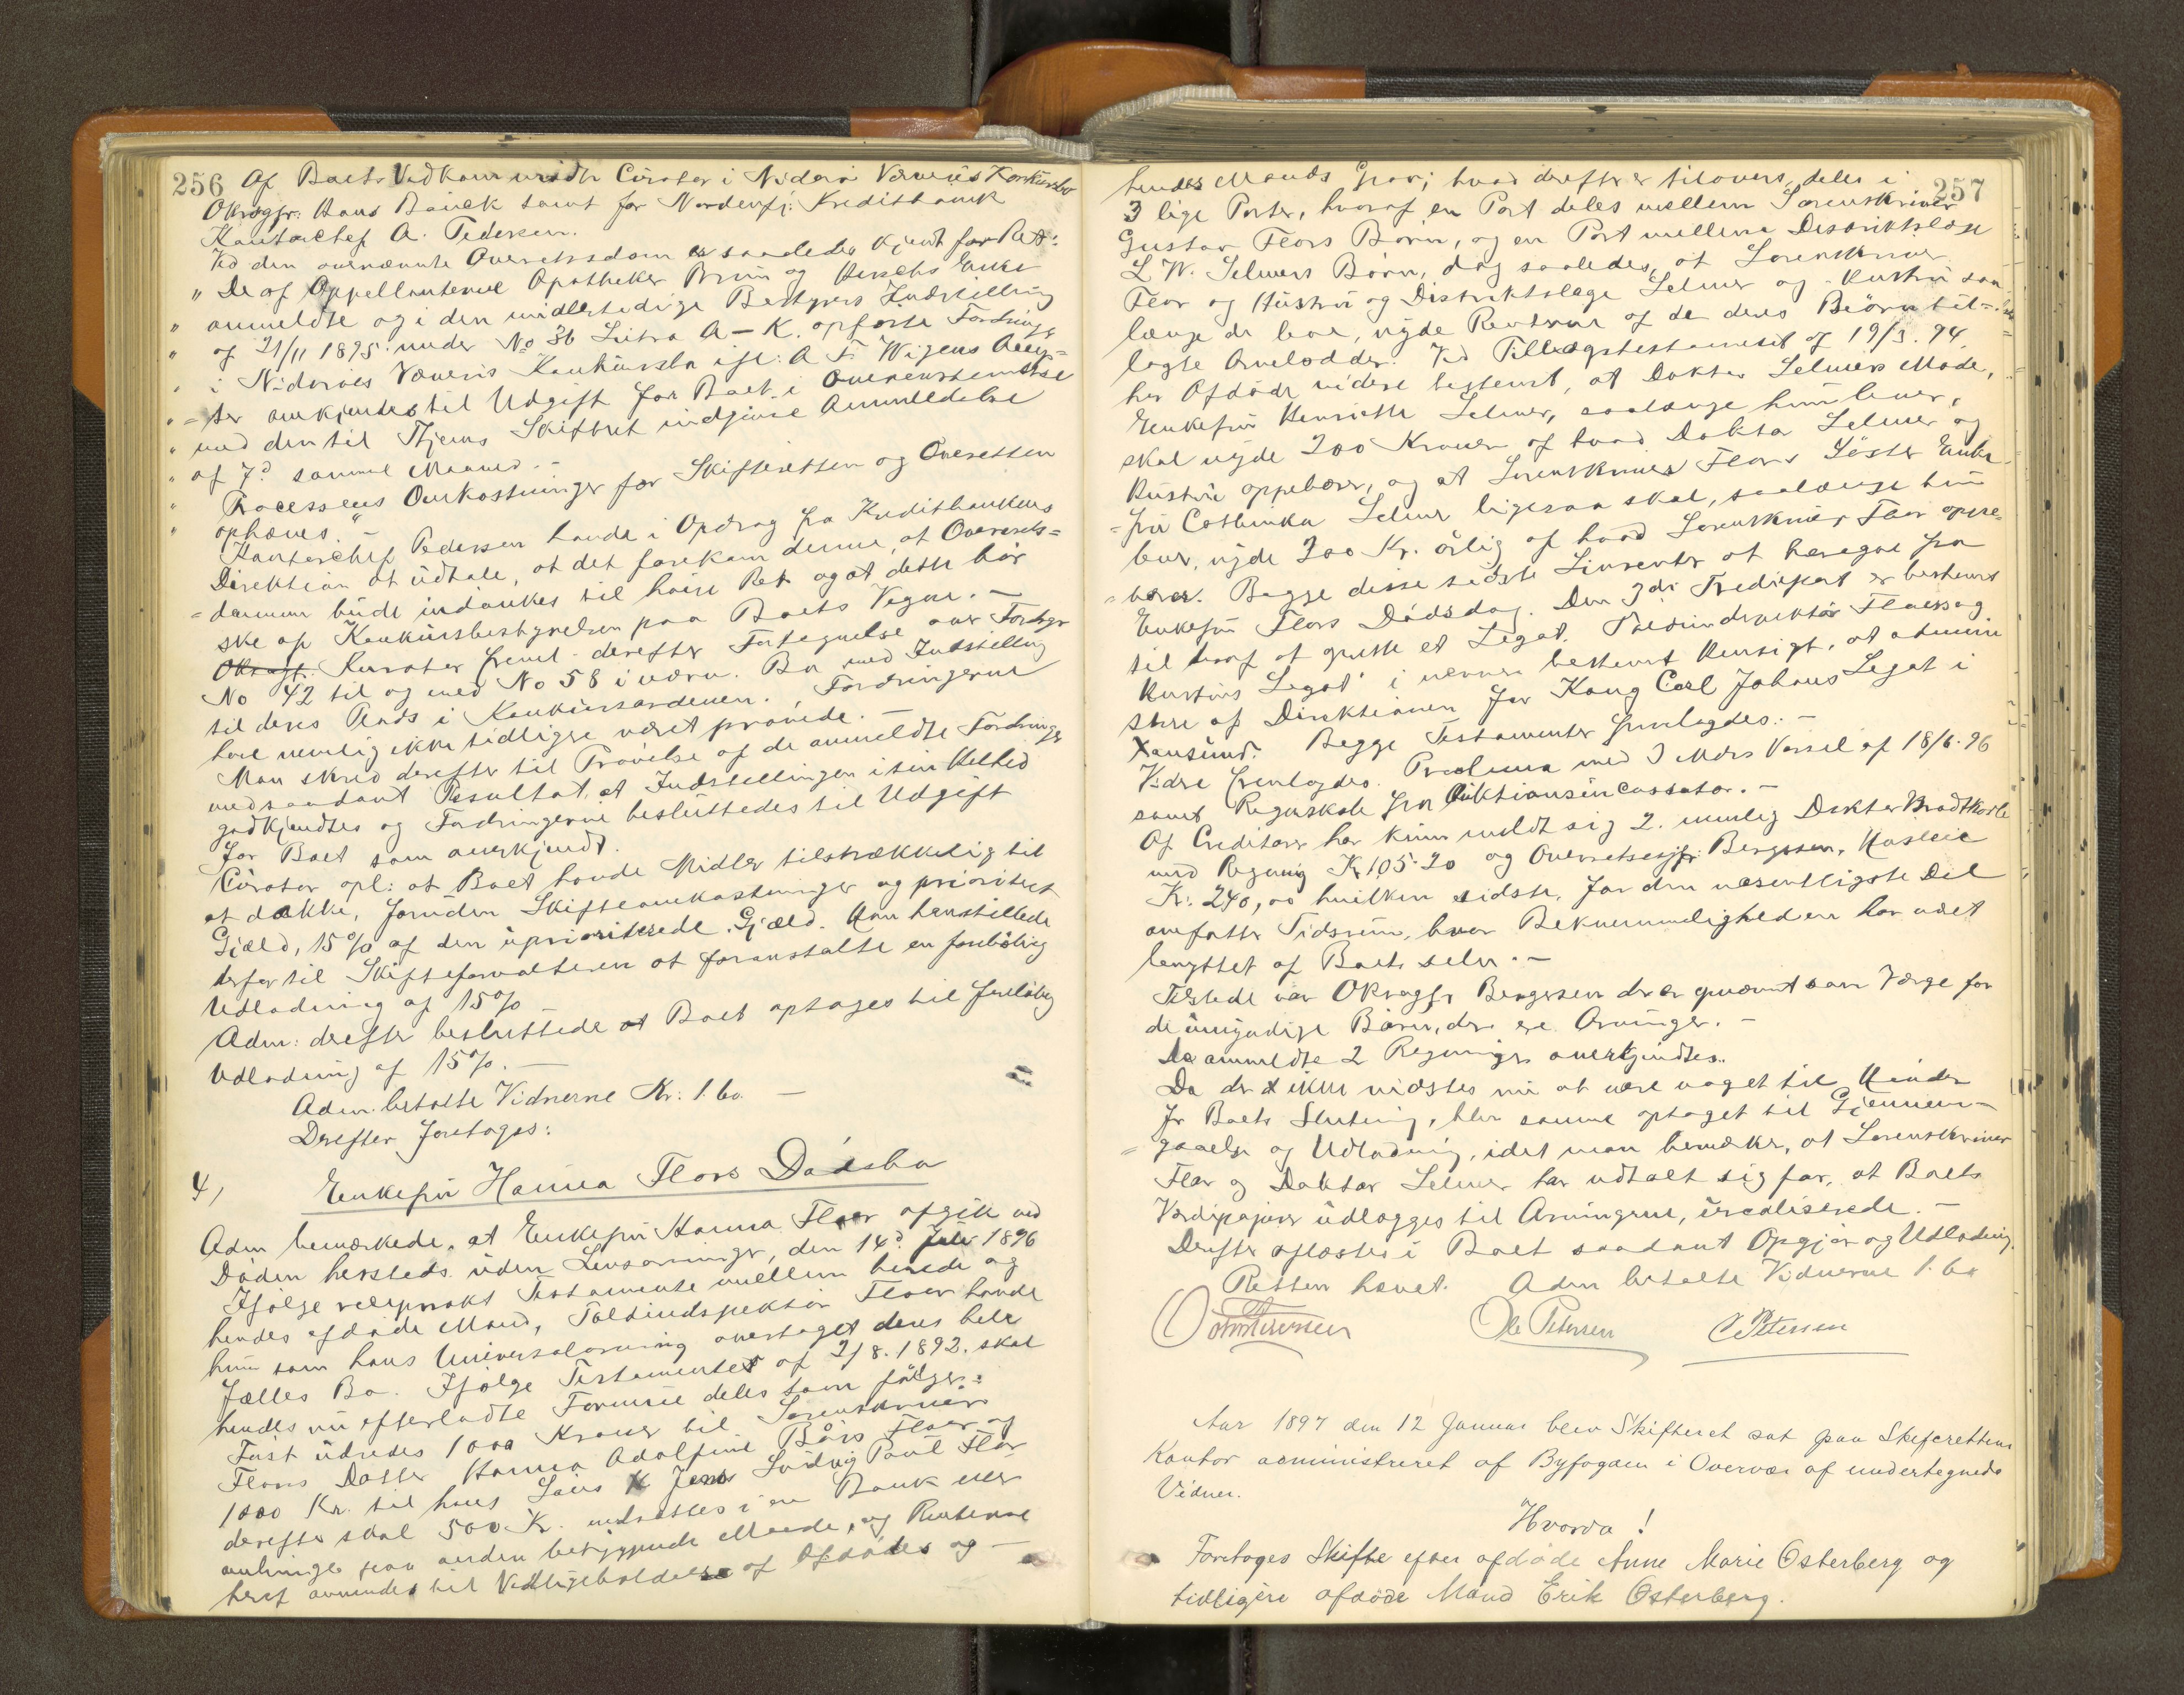 256 Af Boets Vedkommende Curator i Nidarø Væveris Konkursbo
Oksagfr: Hans Bauck samt for Nordenfj: Kreditbank
Kontorchef A. Pedersen.
Ved den ovennævnte Overretsdom er saaledes kjendt for Ret:
" De af Appellanterne Apotheker Bruun og Enke
" anmeldte og i den midlertidige Bestyrers Indstilling
" af 21/11 1895 under No 36 Litra A – K. opførte Fordringer
" i Nidarøes Væveris Konkursbo ifl: A F. Wigens Accep=
" =ter anerkjendes til Udgift for Boet i Overensstemmelse
" med den til Skifteret indgivne Anmeldelse
" af 7d samme Maaned. –
" Processens Omkostninger for Skifteretten og Overretten
" ophæves." –
Kontorchef Pedersen havde i Opdrag fra Kreditbankens
Direktion at udtale, at det forekom denne, at Overrets=
=dommen burde indankes til høiere Ret og at dette bør
ske af Konkursbestyrelsen paa Boets Vegne. –
Kurator freml. derefter Fortegnelse over Fordrgr
No 42 til og med No 58 i nærv. Bo med Indstilling
til deres Plads i Konkursordenen. Fordringerne
have nemlig ikke tidligere været prøvede. –
Man skred derefter til Prøvelse af de anmeldte Fordringer
med saadant Resultat, at Indstillingen i sin Helhed
godkjendtes og Fordringerne besluttedes til Udgift
for Boet som anerkjendt.
Curator opl: at Boet havde Midler tilstrækkelig til
at dække, foruden Skifteomkostninger og prioriteret
Gjæld, 15% af den uprioriterede Gjæld. Han henstillede
derfor til Skifteforvalteren at foranstalte en foreløbig
Udlodning af 15%
Adm: derefter besluttede at Boet optages til foreløbig
Udlodning af 15%. –
Adm. betalte Vidnerne Kr: 1.60. –
Derefter foretoges:
4, Enkefru Hanna Floors Dødsbo
Adm bemærkede, at Enkefru Hanna Floor afgik ved
Døden hersteds uden Livsarvinger, den 14d Juli 1896
Ifølge reciprokt Testamente mellem hende og
hendes afdøde Mand, Toldinspektør Floor havde
hun som hans Universalarving overtaget deres hele
Fælles Bo. Ifølge Testamentet af 2/8. 1892. skal
hendes nu efterladte Formue deles som følger:
Først udredes 1000 Kroner til Sorenskriver
Floors Datter Hanna Adolfine Floor og
1000 Kr. til hans Søn Ludvig Paul Flor
derefter skal 500 Kr. indsættes i en Bank eller
anbringes paa anden betryggende Maade, og Renterne
heraf anvendes til Vedligeholdelse af Afdødes og –
257
hendes Mands Grav; hvad derefter er tilovers, deles i
3 lige Parter, hvoraf en Part deles mellem Sorenskriver
Gustav Floors Børn, og en Part mellem Distriktslæge
L W. Selmers Børn, dog saaledes, at Sorenskriver
Flor og Hustru og Distriktslæge Selmer og Hustru saa
længe de leve, nyde Renterne af de deres Børn til=
lagte Arvelodder. Ved Tillægstestamentet af 19/3. 94.
har Afdøde videre bestemt, at Doktor Selmers Moder,
Enkefru Henriette Selmer, saalænge hun lever,
skal nyde 200 Kroner af hvad Doktor Selmer og
Hustru oppebærer, og at Sorenskriver Floors Søster Enke
=fru Cathinka Selmer ligesaa skal, saalænge hun
lever, nyde 200 Kr. årlig af hvad Sorenskriver Floor oppe=
=bærer. Begge disse sidste Livrenter at beregne fra
Enkefru Floors Dødsdag. Den 3die Trediepart er bestemt
til deraf at grunde et Legat. Toldinspektør Floers og
Hustrus Legat i nærmere bestemt Hensigt, at admini
strere af Direktionen for Kong Carl Johans Legat i
Xansund. Begge Testamenter fremlagdes. –
Videre fremlagdes Proclama med 3 Mdrs Varsel af 18/6. 96
samt Regnskab fra Auktionsincassator. –
Af Creditorer har kun meldt sig 2. nemlig Doktor Bradtkorb
med Regning Kr 105.20 og Overretssagfr: Bergersen, Husleie
Kr. 240,00 hvilken sidste, for den væsentligste Del
omfatter Tidsrum, hvor Bekvemmeligheden har været
benyttet af Boet selv. –
Tilstede var Oksagfr Bergersen der er opnævnt som Værge for
de umyndige Børn, der ere Arvinger. –
De anmeldte 2 Regninger anerkjendtes.
Da der ikke vidstes nu at være noget til Hinder
for Boets Slutning, blev samme optaget til Gjennem=
=gaaelse og Udlodning, idet man bemærker, at Sorenskriver
Flor og Doktor Selmer har udtalt sig for, at Boets
Værdipapirer udlægges til Arvingerne, urealiserede. –
Derefter afløstes i Boet saadant Opgjør og Udlodning.
Retten hævet. Adm betalte Vidnerne 1.60
Ole Petersen C Petersen
Aar 1897 den 12 Januar blev Skifteret sat paa Skifterettens
Kontor administreret af Byfogden i Overvær af undertegnede
Vidner.
Hvorda!
Foretoges Skifte efter afdøde Anne Marie Osterberg og
tidligere afdøde Mand Erik Osterberg.